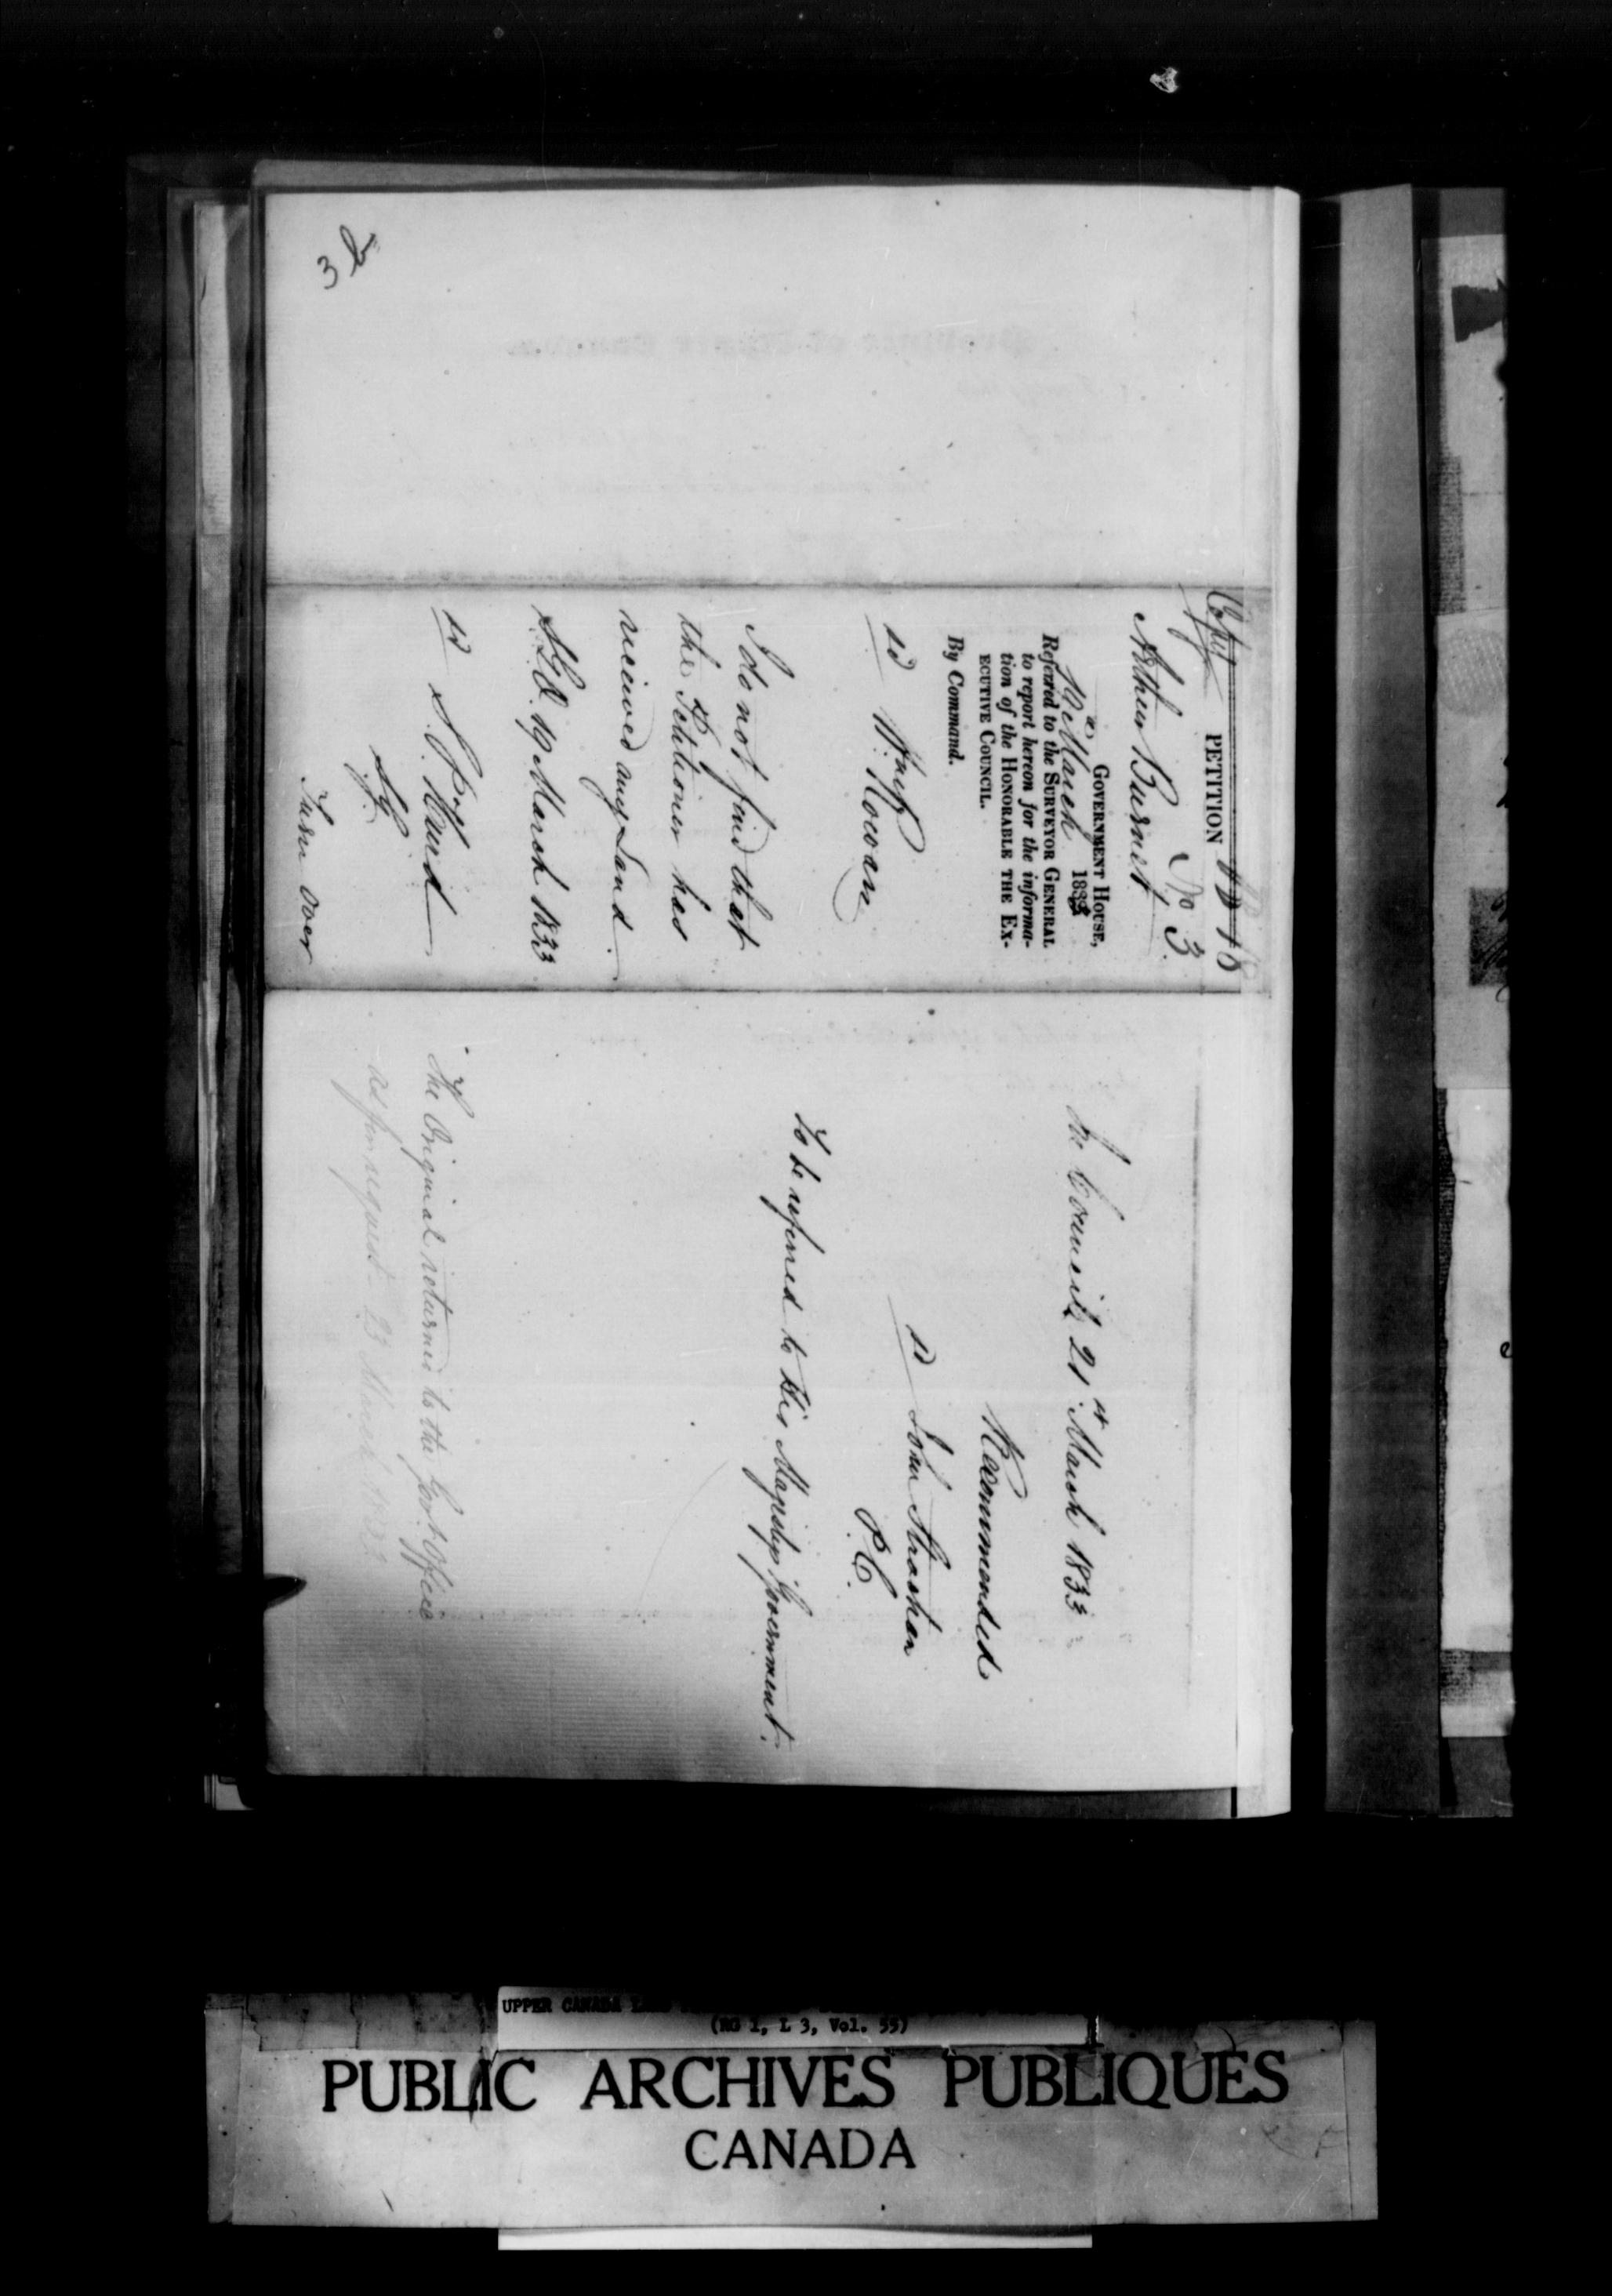 Copy
PETITION
No 3.
Arthur Burnet
GOVERNMENT HOUSE,
March 1833
Referred to the SURVEYOR GENERAL
to report hereon for the informa-
tion of the HONORABLE THE EX-
ECUTIVE COUNCIL.
By Command.
sd Wm Rowan
I do not find that
the Petitioner has
received any Land.
S.G.O. 19 March 1833
sd S. P. Hurd
S.G.
Turn over
In Council 21st March 1833
Recommended
sd John Strachan
P.C.
To be referred to His Majestys Government.
The Original returned to the Govt Office
as per request 23 March 1833
3b
UPPER CANADA
(RG 1, L 3, Vol. 55)
PUBLIC ARCHIVES PUBLIQUES
CANADA